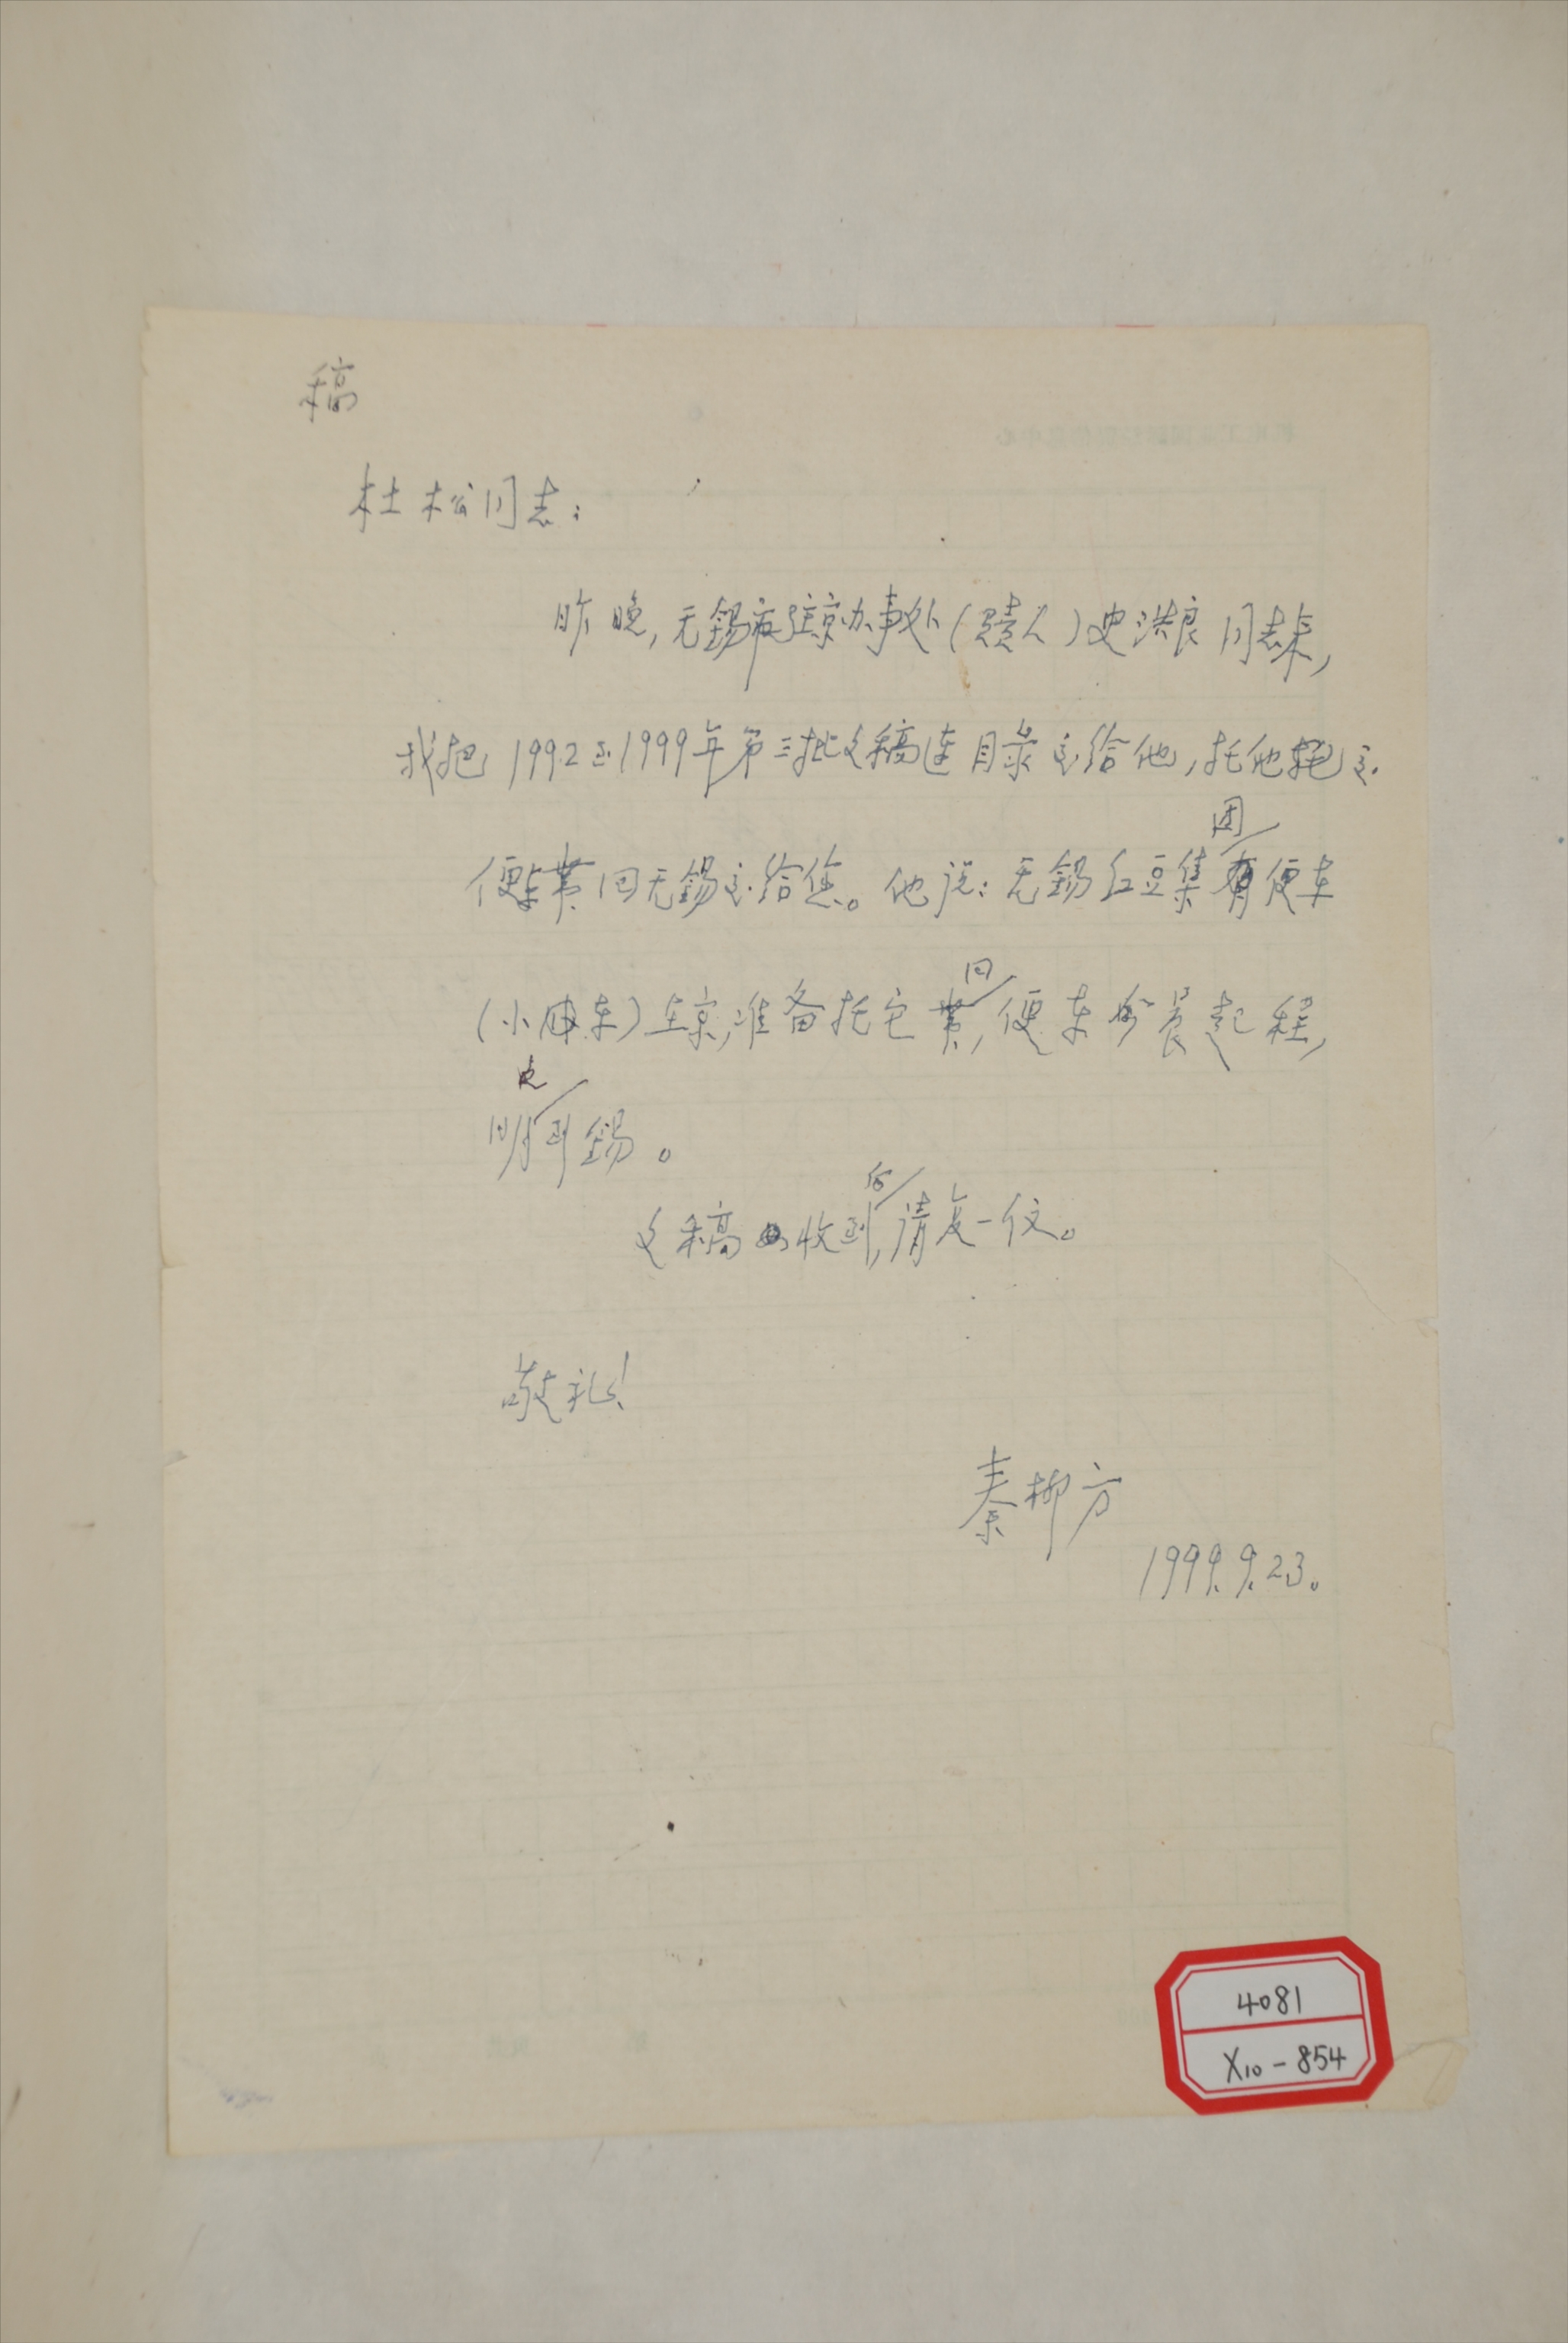 稿
杜松同志：
昨晚，无锡市驻京办事处（负责人）史洪良同志来，
我把1992至1999年第三批文稿连目录交给他，托他托交
便车带回无锡交给您。他说：无锡红豆集团有便车
（小 车）在京，准备托它带回，便车今晨起程，
明 到锡。
文稿收到后，请复一信。
敬礼！
秦柳方
1999.9.23。
4081
X10-854